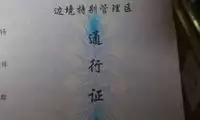 边境特别管理区
通行证